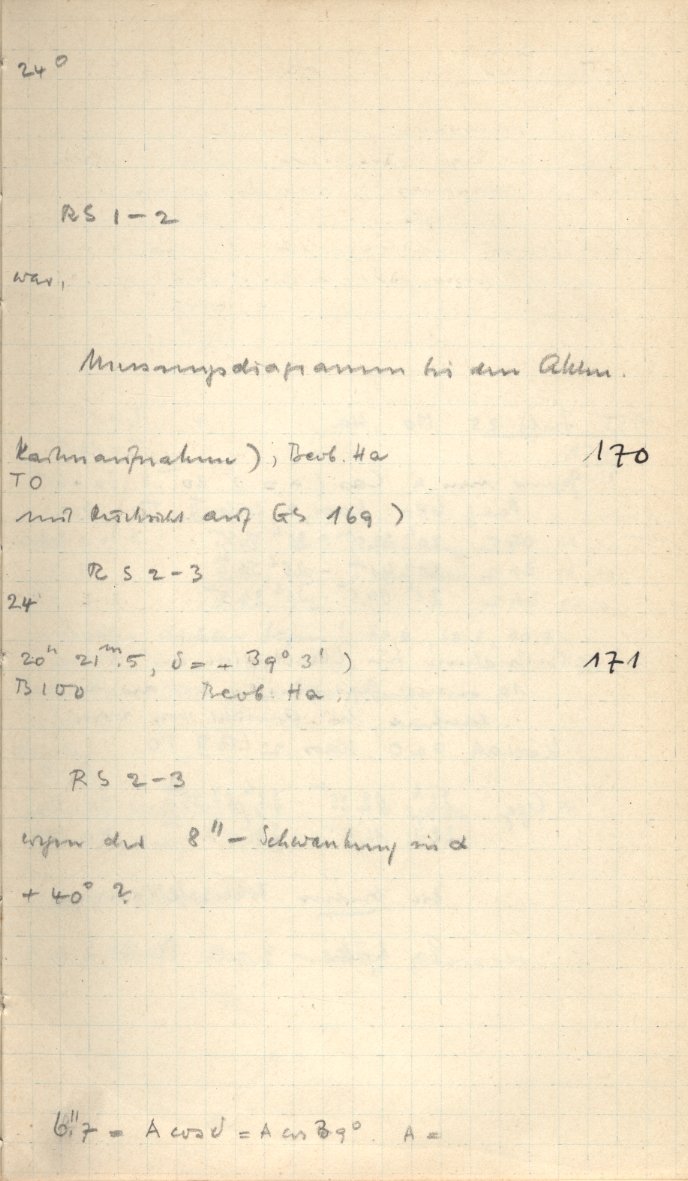 24°
RS 1-2
war,
Messungsdiagramm bei den Akten.
Kartenaufnahme), Beob. Ha 170
TO
mit Rücksicht auf GS 169)
RS 2-3
24
20ʰ 21ᵐ.5, δ = + 39° 3')
171
B100 Beob. Ha
RS 2-3
wegen der 8" - Schwankung in α
+ 40° ?
6".7 = A cos δ = A cos 39° A =